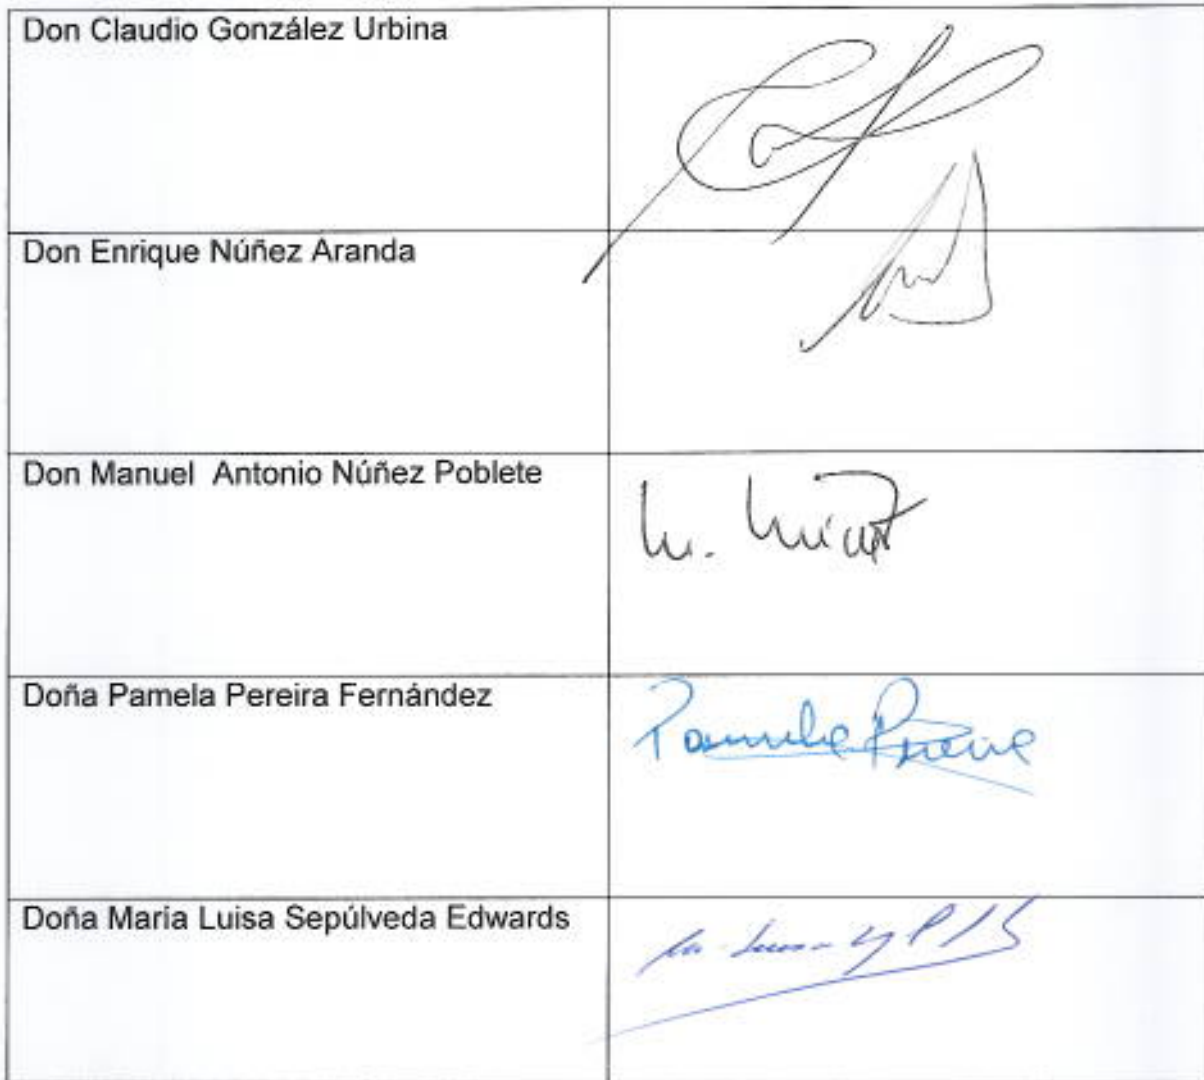 Don Claudio González Urbina
Don Enrique Núñez Aranda
Don Manuel Antonio Núñez Poblete
M. Núñez
Doña Pamela Pereira Fernández
Pamela Pereira
Doña María Luisa Sepúlveda Edwards